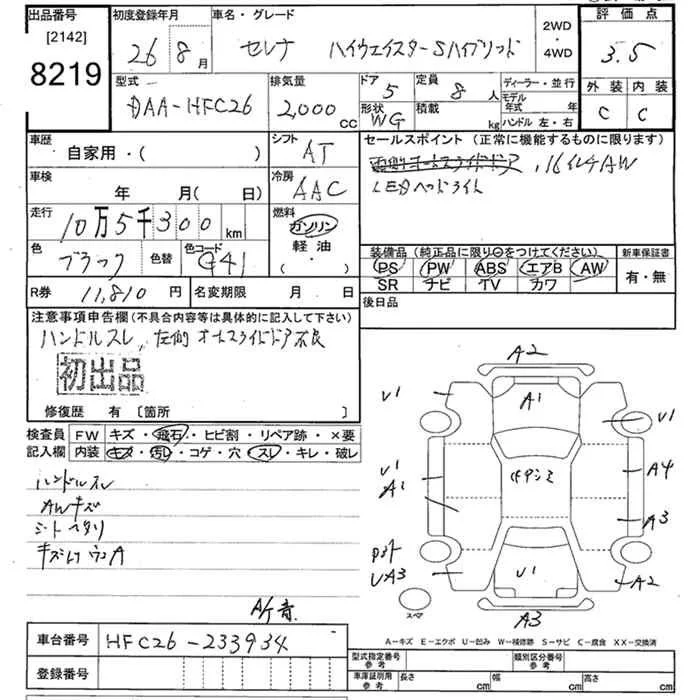 出品番号 初度登録年月 車名・グレード 2WD・4WD 評価点
[2142]
8219
26 8月 セレナ ハイウェイスターSハイブリッド 3.5
型式 排気量 ドア 定員 ディーラー・並行 外装 内装
DAA-HFC26 2,000cc 5 8人 モデル年式 年 C C
形状 積載 kg ハンドル 左・右
WG
車歴 シフト セールスポイント (正常に機能するものに限ります)
自家用・( ) AT
16インチAW
車検 冷房 LEDヘッドライト
年 月( 日) AAC
走行 燃料
10万5千300km ガソリン
軽油
( ・ )
色 色替 色コード
ブラック G41
装備品 (純正品に限り○をつけてください。) 新車保証書
PS PW ABS エアB AW 有・無
SR ナビ TV カワ
R券 11,810円 名変期限 月 日 後日品
注意事項申告欄 (不具合内容等は具体的に記入して下さい)
ハンドルスレ、左側オートスライドドア不良
初出品
修復歴 有 [箇所 ]
検査員 FW キズ・飛石・ヒビ割・リペア跡・×要
記入欄 内装 キズ・汚レ・コゲ・穴・スレ・キレ・破レ
ハンドルスレ
AWキズ
シートヘタリ
A2
V1 A1 V1
V1 A4
A1
A3
UA3 V1 A2
スペア A3
A-キズ E-エクボ U-凹み W-補修跡 S-サビ C-腐食 XX-交換済
車台番号 HFC26-233934
登録番号
型式指定番号 参考 類別区分番号 参考
車庫証明用 参考 長さ cm 幅 cm 高さ cm